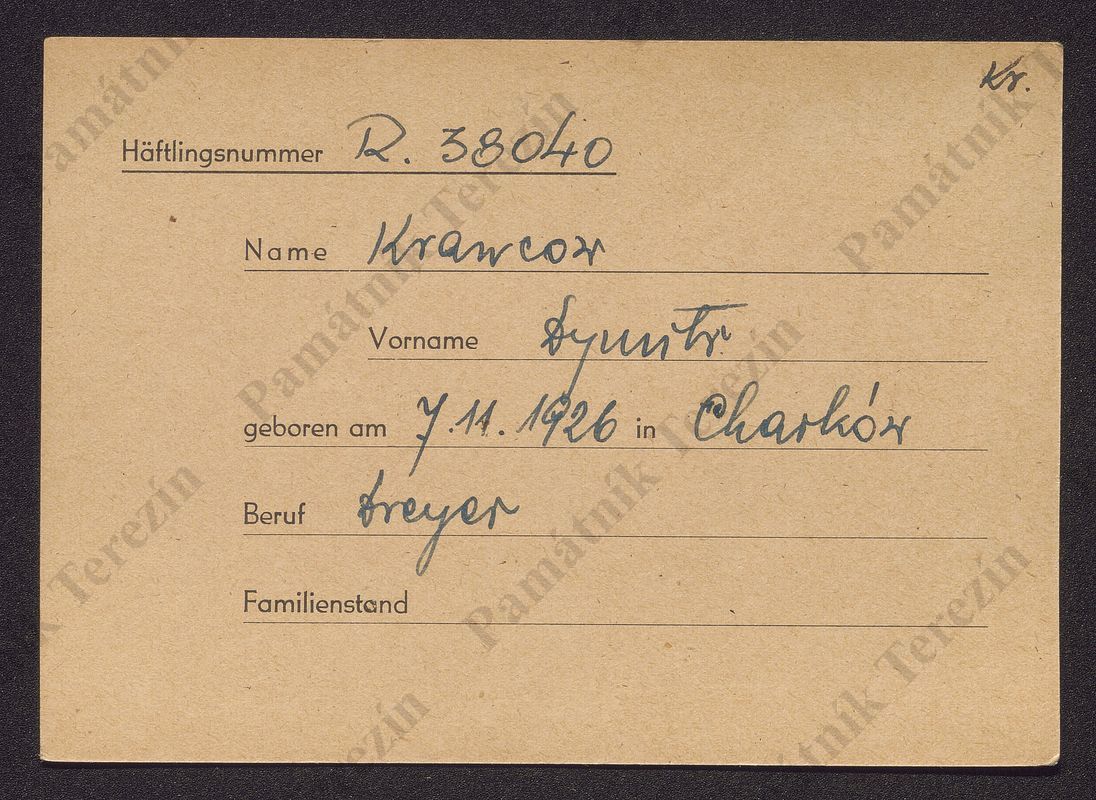 Kr.
Häftlingsnummer R. 38040
Name Krawcow
Vorname Dymitr
geboren am 7.11.1926 in Charków
Beruf Dreyer
Familienstand
Památník Terezín